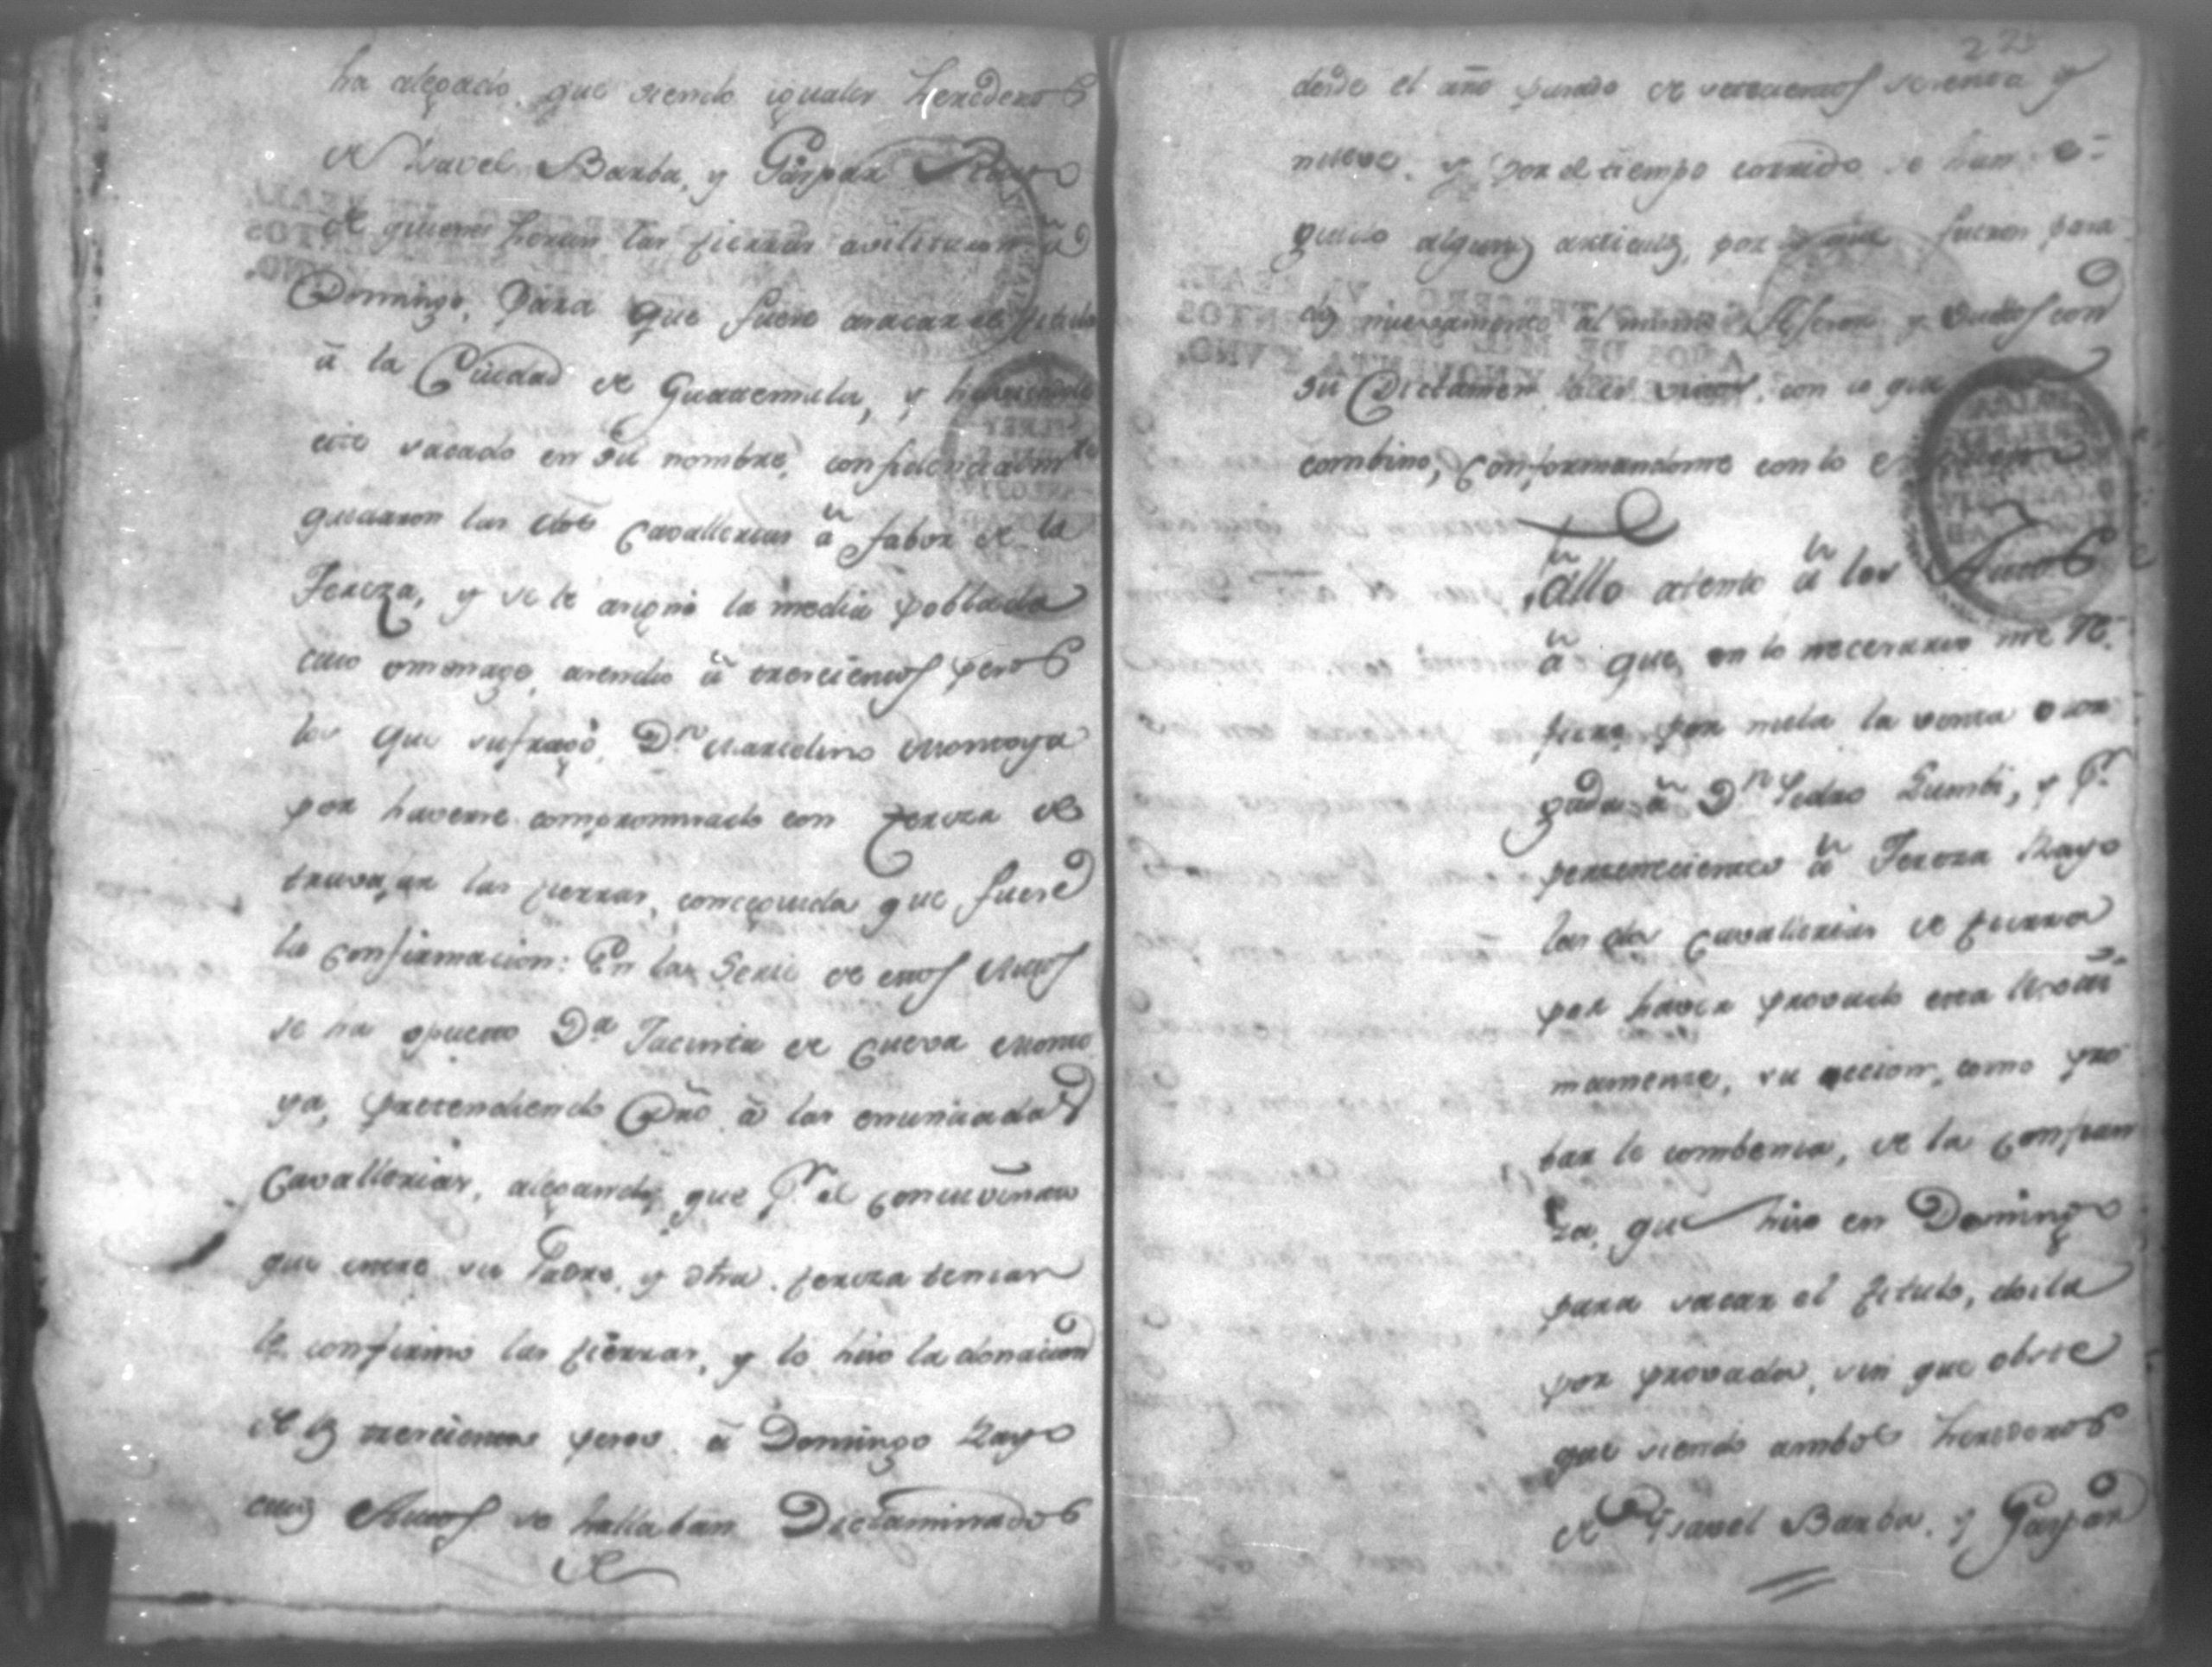 ha alegado, que siendo iguales herederos
de Ysavel Barba, y Gaspar Rayo
de quienes heran las tierras avilitaron â
Domingo, para que fuese a sacar el titulo
â la Ciudad de Guatemala, y haviendole
este sacado en su nombre, confidencialm.te
quedaron las dos Cavallerias â fabor de la
Tereza, y se le asignó la media poblada
cuio omenage, asendio â trescientos pesos
los que sufragó, D.n Marcelino Montoya
por haverse compromisado con Tereza de
travajar las tierras, conseguida que fuese
la confirmacion: En la Serie de estos Autos
se ha opuesto D.a Jacinta de Cueva Monto
ya, pretendiendo Dro. â las enunciadas
Cavallerias, alegando, que p.r el concuvinato
que entre su Padre, y otra Tereza tenian
le confirmó las tierras, y lo hiso la donacion
de los trescientos pesos â Domingo Rayo
cuios Autos se hallaban Dictaminados
225
desde el año pasado de setecientos setenta y
nueve, y por el tiempo corrido se han
guido algunos articulos, por fueron pasa
dos nuevamente al mismo Asesor y bueltos con
su Dictamen los vistos, con lo que
combino, Conformandome con lo
Fallo atento â los Autos
â que en lo necesario me re-
fiero, por nula la venta otor
gada â D.n Pedro Zumbi, y p.r
pertenecientes â Tereza Rayo
las dos Cavallerias de tierra
por haver provado esta
mamente, su accion, como pro
bar le combenia, de la confian
za, que hiso en Domingo
para sacar el titulo, doila
por provada, sin que obste
que siendo ambos herederos
de Ysavel Barba, y Gaspar